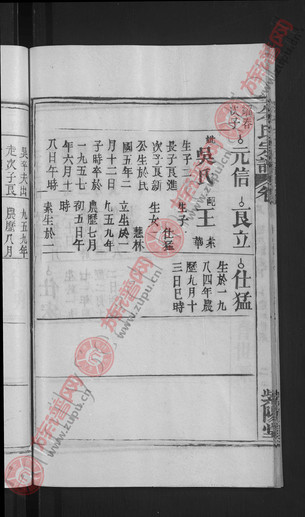 次子
元信
良立
仕猛
吳氏
配王素華
生子二
長子良進
次子良新
公生於民
國五年二
月十二日
子時卒於
一九五七
年六月十
八日午時
生子
仕猛
生女
慧林
立生癸一
九五九年
農歷七月
初五日午
時
素生於一
生於一九
八四年農
歷九月十
三日巳時
吳氏夫出
一九五九年
走次子良
農歷八月
紫陽堂
族譜网
www.zupu.cn